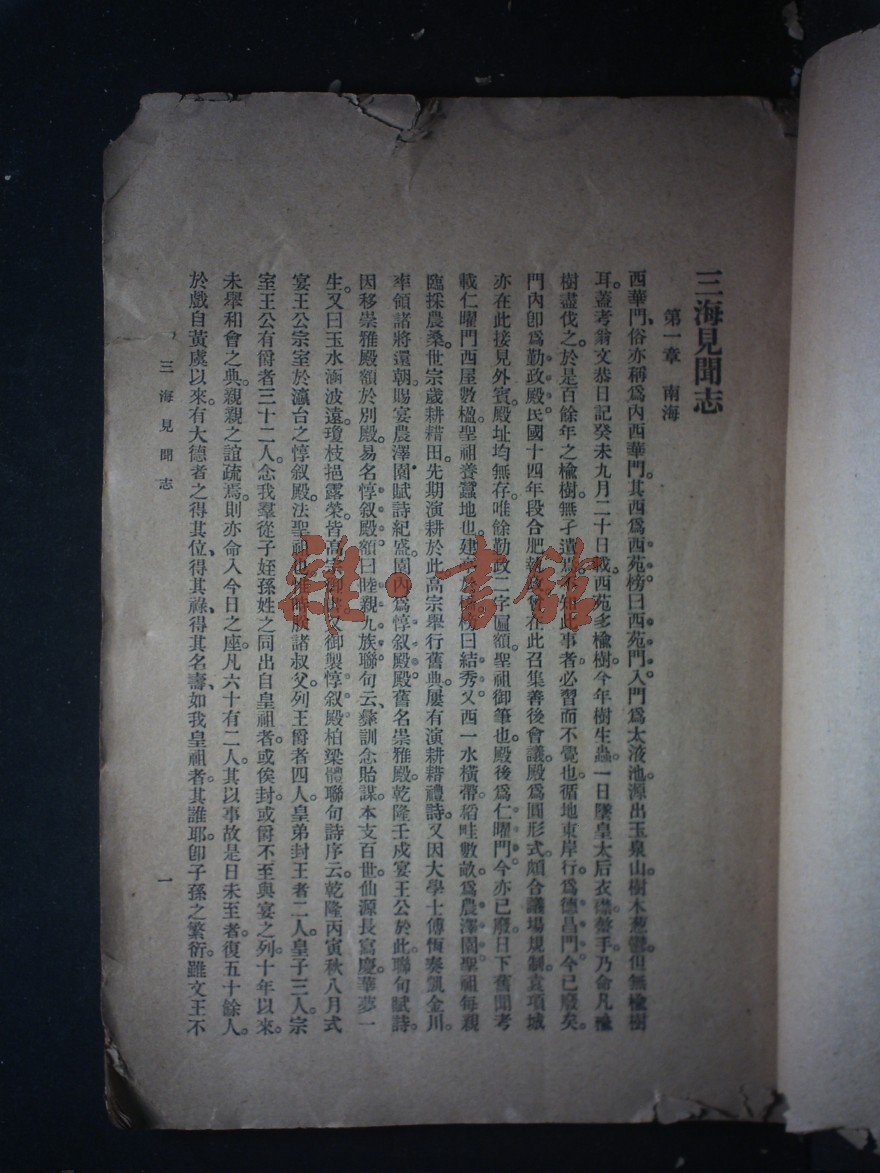 三海見聞志
第一章　南海
西華門、俗亦稱爲內西華門。其西爲西苑榜曰西苑門。入門爲太液池。源出玉泉山。樹木葱鬱。但無楡樹
耳。蓋考翁文恭日記癸未九月二十日載西苑多楡樹。今年樹生蟲。一日墜皇太后衣襟螫手。乃命凡楡
樹盡伐之。於是百餘年之楡樹無孑遺焉。不知此事者必習而不覺也。循地東岸行。爲德昌門。今已廢矣。
門內卽爲勤政殿。民國十四年段合肥執政曾在此召集善後會議。殿爲圓形式。頗合議場規制。袁項城
亦在此接見外賓。殿址均無存。唯餘勤政二字匾額。聖祖御筆也。殿後爲仁曜門。今亦已廢。日下舊聞考
載仁曜門西屋數楹。聖祖養蠶地也。建亭於橋。榜曰結秀。又西一水橫帶。稻畦數畝。爲農澤園。聖祖每親
臨採農桑。世宗歲耕耤田。先期演耕於此。高宗舉行舊典。屢有演耕耤禮詩。又因大學士傅恆奏凱金川。
率領諸將還朝。賜宴農澤園賦詩紀盛。園內爲惇叙殿。殿舊名崇雅殿。乾隆壬戌宴王公於此。聯句賦詩。
因移崇雅殿額於別殿。易名惇叙殿。額曰睦親九族。聯句云、彝訓念貽謀。本支百世。仙源長寫慶。華萼一
生。又曰玉水涵波遠。瓊枝挹露榮。皆高宗御書。又御製惇叙殿柏梁體聯句詩序云。乾隆丙寅秋八月式
宴王公宗室於瀛台之惇叙殿。法聖祖也。維時朕諸叔父。列王爵者四人。皇弟封王者二人。皇子三人。宗
室王公有爵者三十二人。念我羣從子姪孫姓之同出自皇祖者。或俟封。或爵不至與宴之列。十年以來。
未舉和會之典。親親之誼疏焉。則亦命入今日之座。凡六十有二人。其以事故是日未至者。復五十餘人。
於戲自黃虞以來。有大德者之得其位、得其祿、得其名、壽、如我皇祖者。其誰耶。卽子孫之繁衍。雖文王不
三海見聞志
一
雜·書館